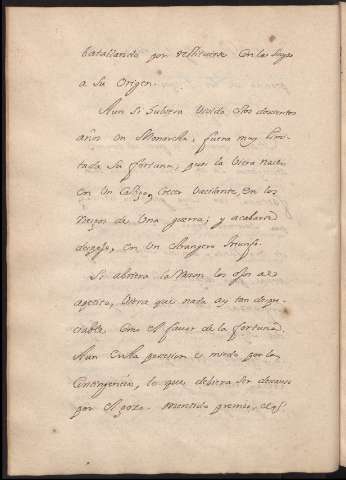 batallando por restituirse con las suyas
a su origen.
Aun si Hubiera vivido otros doscientos
años un Monarcha, fuera muy limi-
tada su fortuna, pues la viera nacer
con un Crecer vacilante, en los
riesgos de una guerra; y acabara
con un estrangero triunfo.
Si abriera la razon los ojos al
apetito, viera que nada ay tan despre-
ciable como el favor de la fortuna.
Aun en la posesion es miedo por las
Contingencias, lo que debiera ser descanso
por el gozo. Mentido premio,